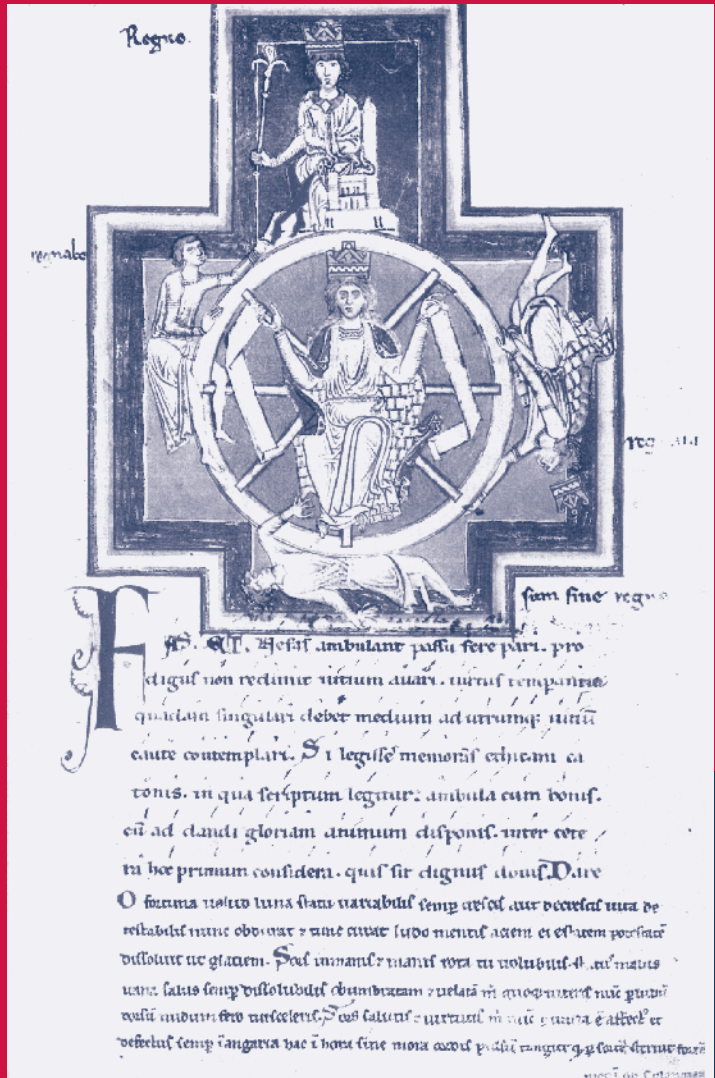 Regno.
regnabo
regnaui
sum sine regno
FAS. ET. Nefas ambulant passu fere pari. pro
digus non redimit uitium auari. uirtus temperantia
quadam singulari debet medium ad utrumq; uitiū
caute contemplari. Si legisse memoras ethicam ca
tonis. in qua scriptum legitur: ambula cum bonis.
cū ad dandi gloriam animum disponis. inter cete
ra hoc primum considera. quis sit dignus donis. Dare
O fortuna uelud luna statu uariabilis semp crescis aut decrescis uita de
testabilis nunc obdurat & tunc curat ludo mentis aciem egestatem potestatē
dissoluit ut glaciem. Sors inmanis & inanis rota tu uolubilis status malus
uana salus semp dissolubilis obumbratam & uelatā m quoq niteris nūc p ludū
dorsū nudum fero tui sceleris. Sors salutis & uirtutis m nūc ē affect et
defectus semp ī angaria hac ī hora sine mora cordis pulsū tangite q p sortē sternit fortē
mecū plangite